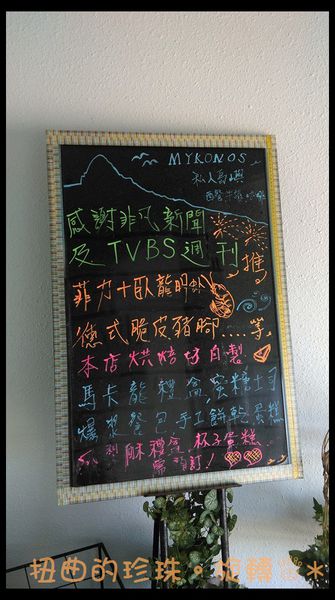 MYKONOS
私人島嶼
感謝非凡新聞
及TVBS週刊
推
菲力+臥龍明蝦
德式脆皮豬腳....等
本店烘焙坊自製
馬卡龍禮盒蜜糖土司
爆漿餐包手工餅乾蛋糕
酥禮盒.杯子蛋糕...
需預訂!
扭曲的珍珠。旋轉